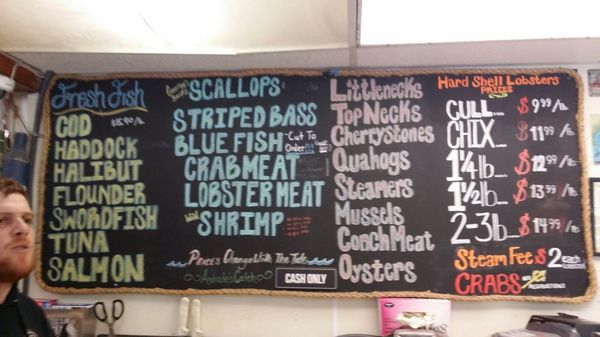 Fresh Fish
COD $15.99/lb
HADDOCK
HALIBUT
FLOUNDER
SWORDFISH
TUNA
SALMON
SCALLOPS
STRIPED BASS
BLUE FISH -Cut To Order
CRABMEAT
LOBSTER MEAT
Wild SHRIMP
Prices Change With The Tide
CASH ONLY
Littlenecks
Top Necks
Cherrystones
Quahogs
Steamers
Mussels
Conch Meat
Oysters
Hard Shell Lobsters
PRICES
CULL.... $9 99/lb.
CHIX.... $11 99/lb.
1 1/4 lb.... $12 99/lb.
1 1/2 lb.... $13 99/lb.
2-3 lb.... $14 99/lb.
Steam Fee $2 each
CRABS